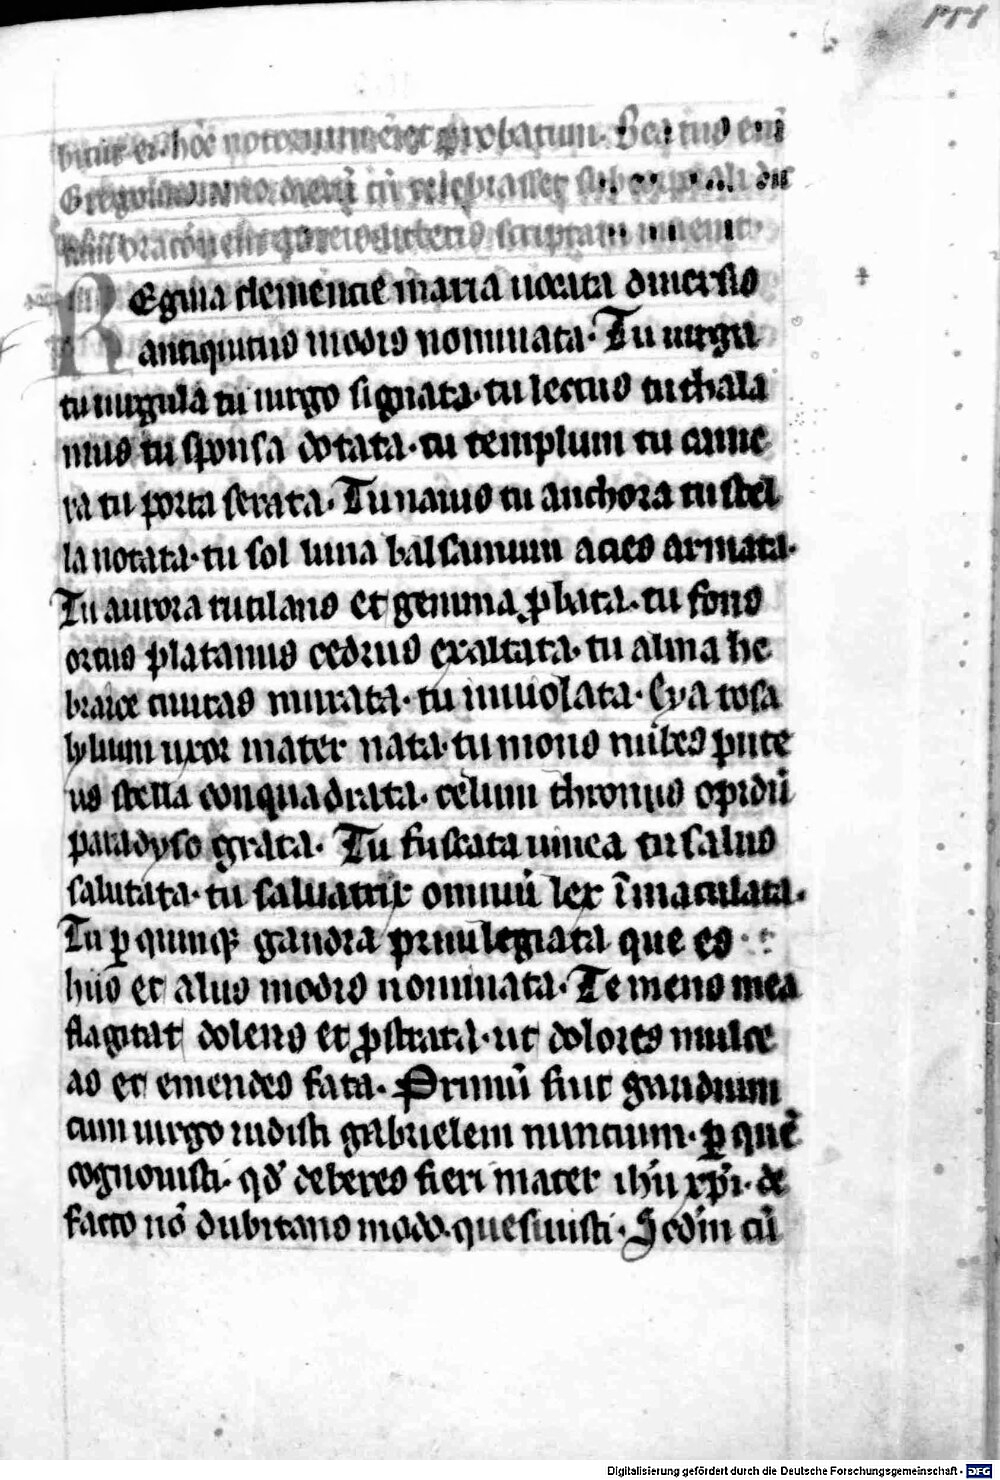 bitur ei. hoc notorium e[st] et probatum. Beatus em̄
Gregorius
scriptam inuenit
REgina clemencie maria uocata diuersis
antiquitus modis nominata. Tu uirga
tu uirgula tu uirgo signata. tu lectus tu thala
mus tu sponsa dotata. tu templum tu came
ra tu porta serata. Tu nauis tu anchora tu stel
la notata. tu sol luna balsamum acies armata.
Tu aurora rutilans et gemma ꝓbata. tu fons
ortus platanus cedrus exaltata. tu alma he
braice ciuitas murata. tu inuiolata. Eya rosa
lylium uxor mater nata. tu mons nubes pute
us stella conquadrata. celum thronus opidū
paradyso grata. Tu fuscata uinea tu salus
salutata. tu saluatrix omniū lex īmaculata.
Tu ꝑ quinqꝫ gaudia priuilegiata que es
hiis et aliis modis nominata. Te mens mea
flagitat dolens et ꝓstrata. ut dolores mulce
as et emendes fata. Primū fuit gaudium
cum uirgo uidisti gabrielem nuncium. ꝑ quē
cognouisti. qď deberes fieri mater ihū xp̄i. de
facto nō dubitans modo. quesiuisti. Sed in cū
Digitalisierung gefördert durch die Deutsche Forschungsgemeinschaft - DFG